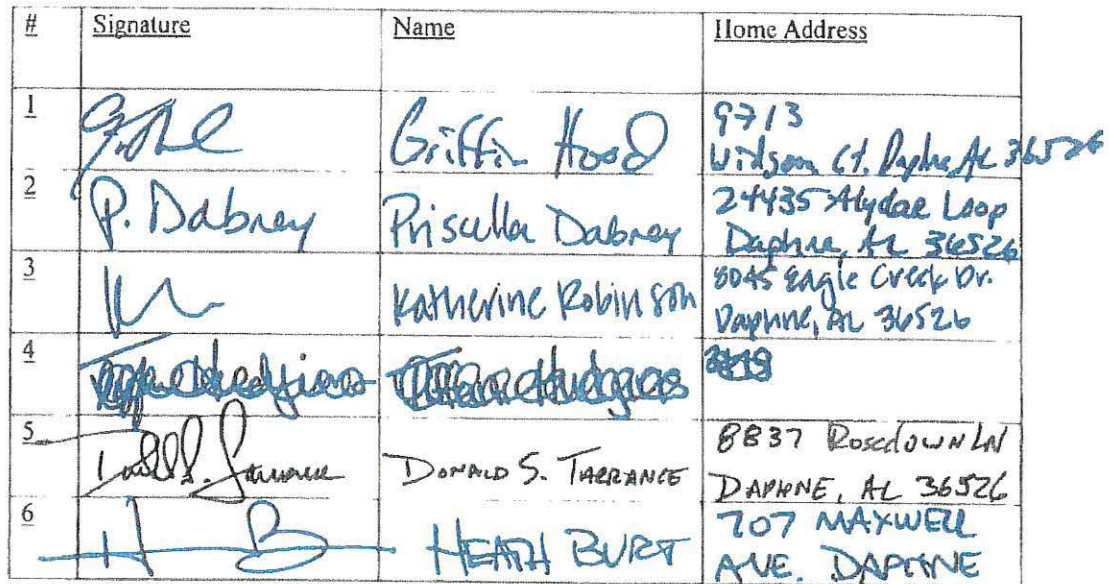 # Signature Name Home Address
1 Griffin Hood 9713
Ct. Daphne, AL 36526
2 P. Dabney Priscilla Dabney 24435 Alydar Loop
Daphne, AL 36526
3 Katherine Robinson 8045 Eagle Creek Dr.
Daphne, AL 36526
4
5 DONALD S. TARRANCE 8837 Rosedown LN
DAPHNE, AL 36526
6 H B HEATH BURT 707 MAXWELL
AVE. DAPHNE